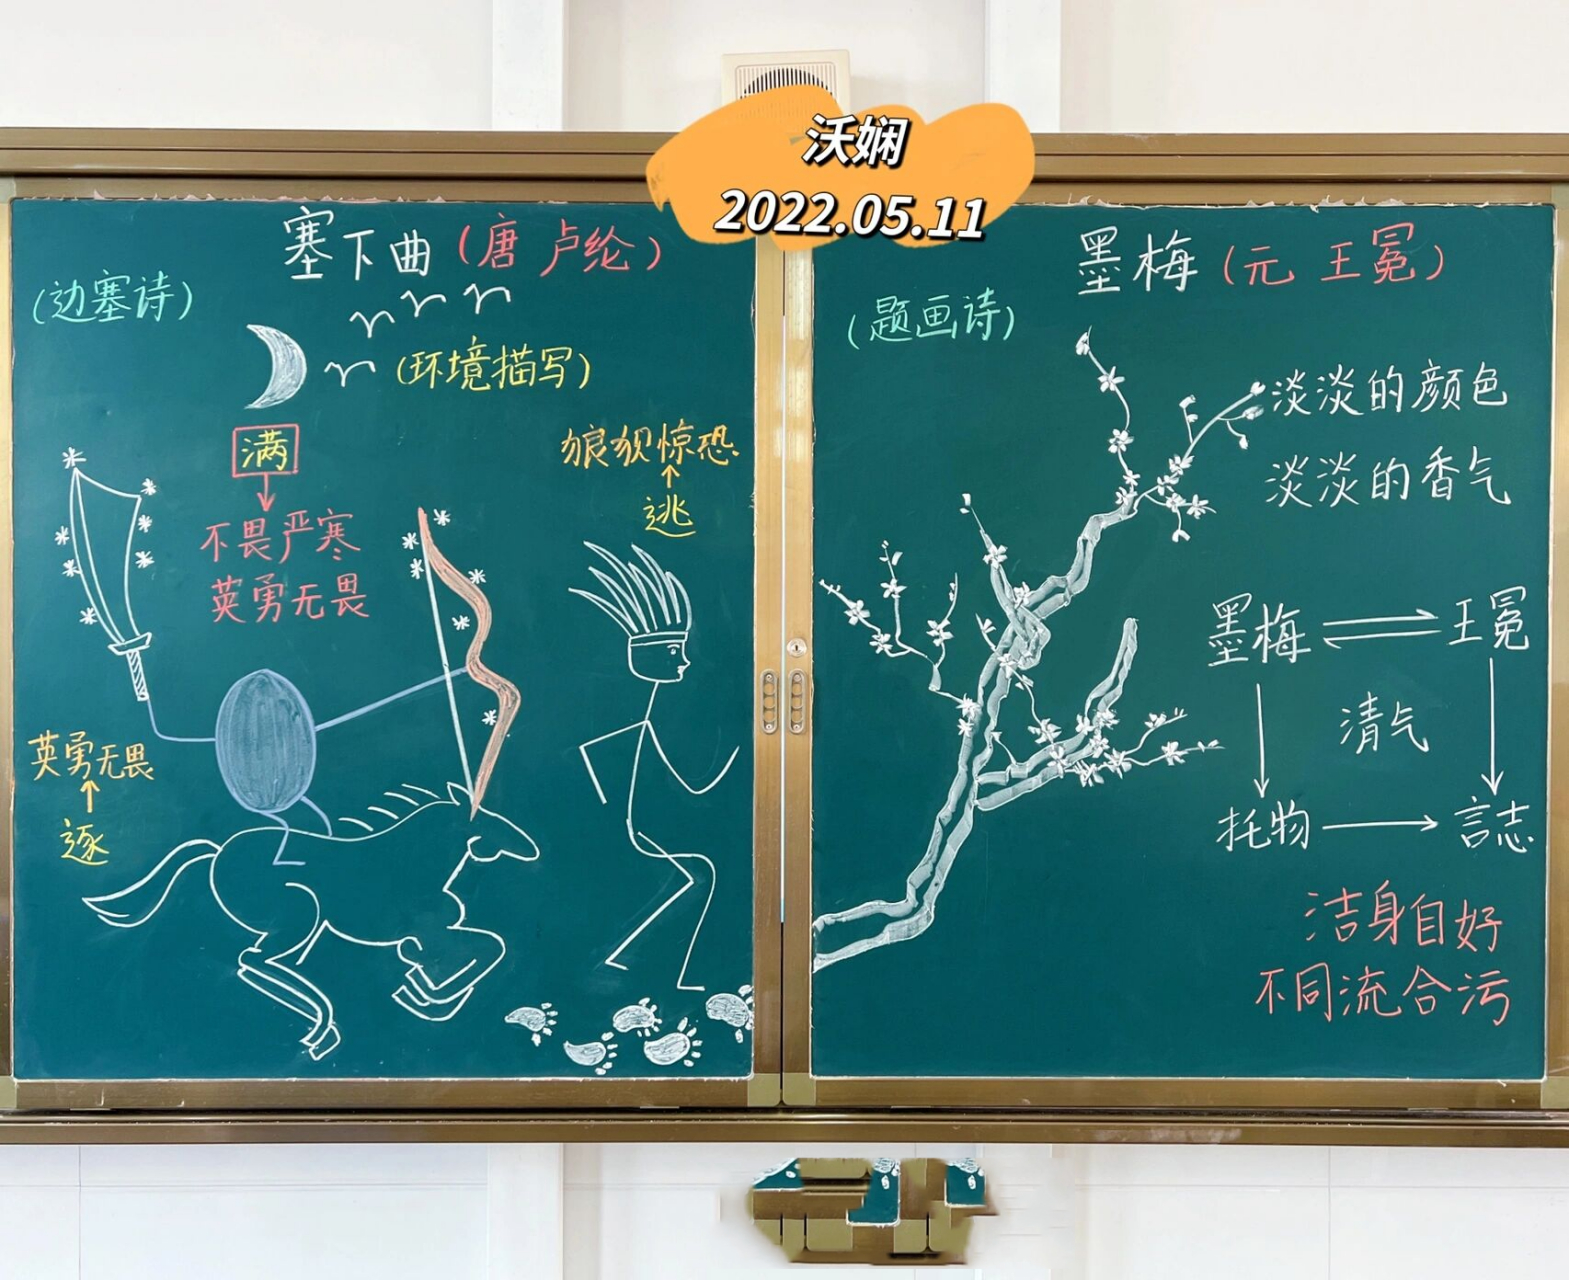 沃娴
2022.05.11
塞下曲（唐 卢纶）
（边塞诗）
（环境描写）
满
不畏严寒
英勇无畏
狼狈惊恐
逃
英勇无畏
逐
墨梅（元 王冕）
（题画诗）
淡淡的颜色
淡淡的香气
墨梅 王冕
清气
托物 言志
洁身自好
不同流合污